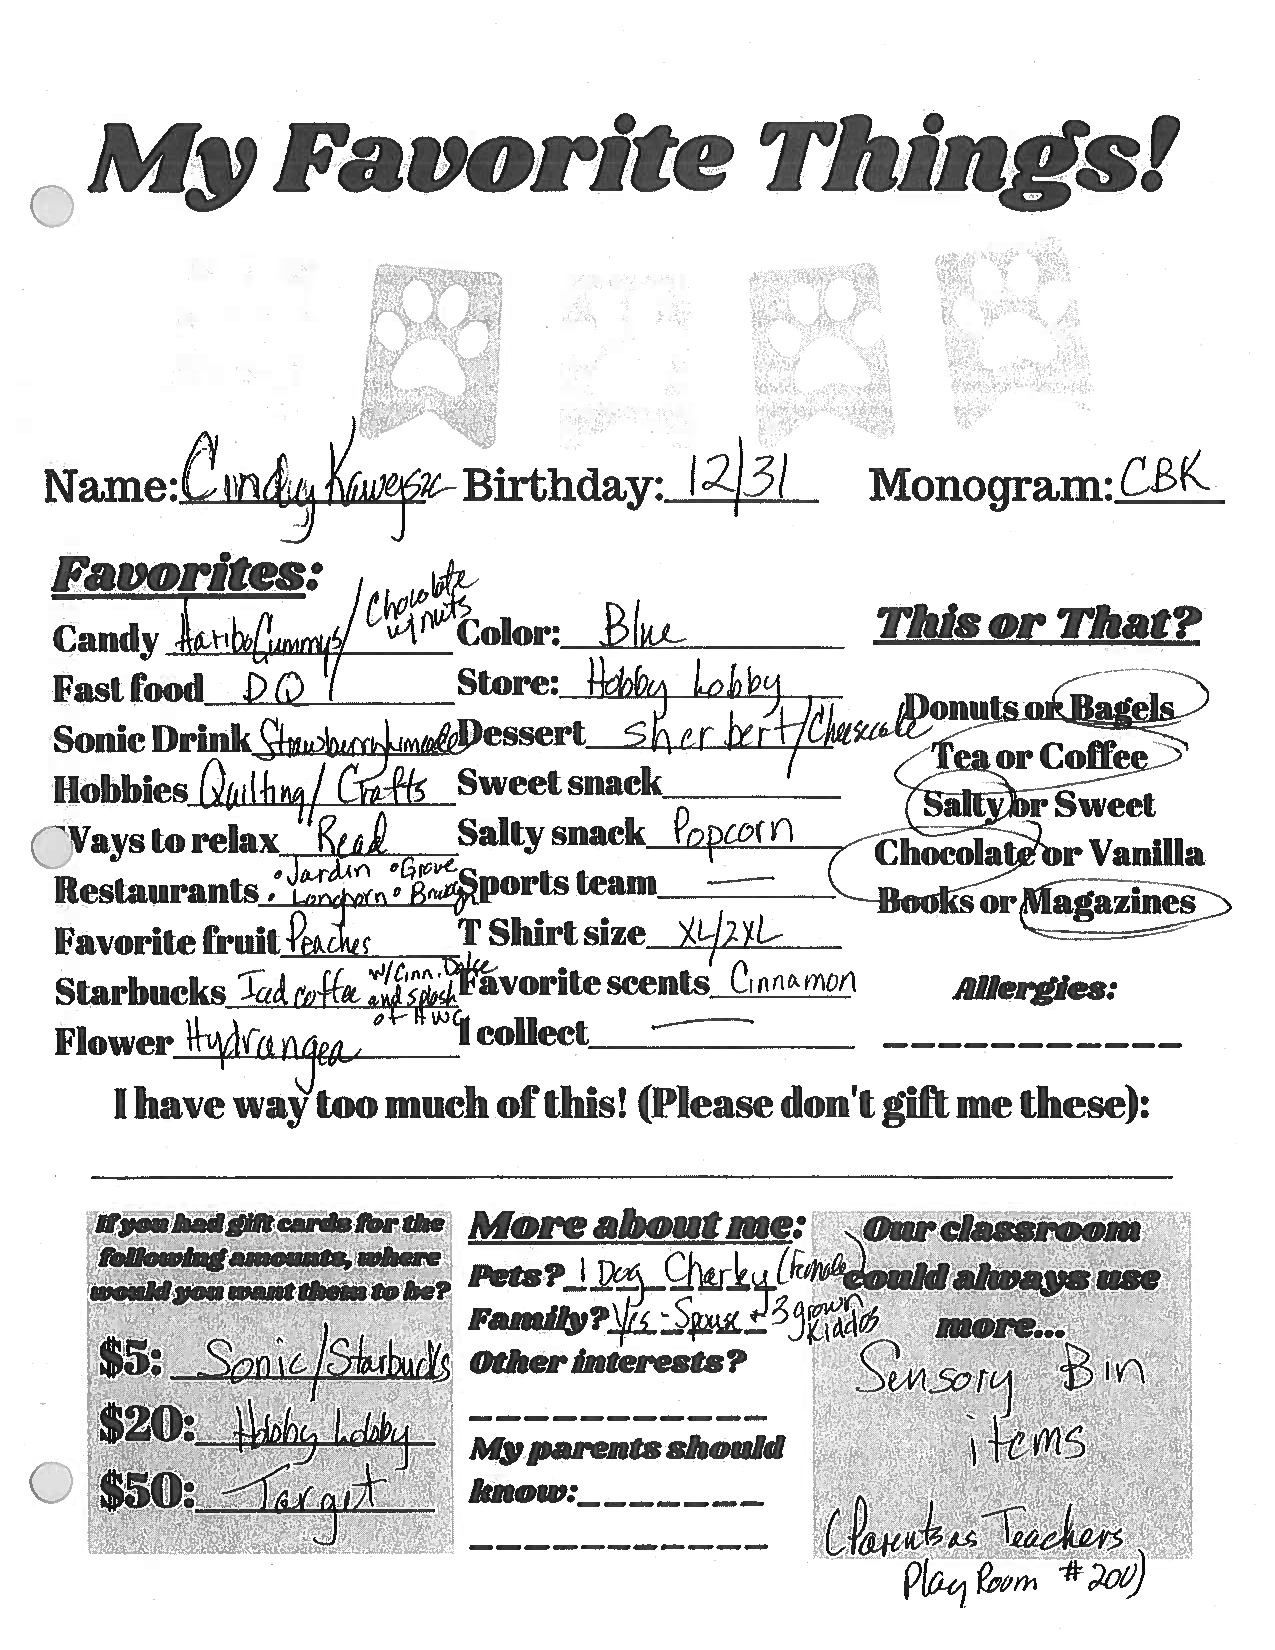 My Favorite Things!
Name: Cindy Birthday: 12/31 Monogram: CBK
Favorites:
Candy Haribo Gummys / Chocolate w/ nuts
Fast food DQ
Sonic Drink Strawberry limeade
Hobbies Quilting / Crafts
Ways to relax Read
Restaurants • Jardin • Grove
• Longhorn •
Favorite fruit Peaches
Starbucks Iced coffee w/ Cinn. Dolce
and splash
of HWC
Flower Hydrangea
Color: Blue
Store: Hobby Lobby
Dessert sherbert / Cheesecake
Sweet snack
Salty snack Popcorn
Sports team —
T Shirt size XL/2XL
Favorite scents Cinnamon
I collect —
This or That?
Donuts or Bagels
Tea or Coffee
Salty or Sweet
Chocolate or Vanilla
Books or Magazines
Allergies:
I have way too much of this! (Please don't gift me these):
If you had gift cards for the
following amounts, where
would you want them to be?
$5: Sonic/Starbucks
$20: Hobby Lobby
$50: Target
More about me:
Pets? 1 Dog Charley (female)
Family? Yes - Spouse + 3 grown
Kiddos
Other interests?
My parents should
know:
Our classroom
could always use
more...
Sensory Bin
items
(Parents as Teachers
Play Room #200)